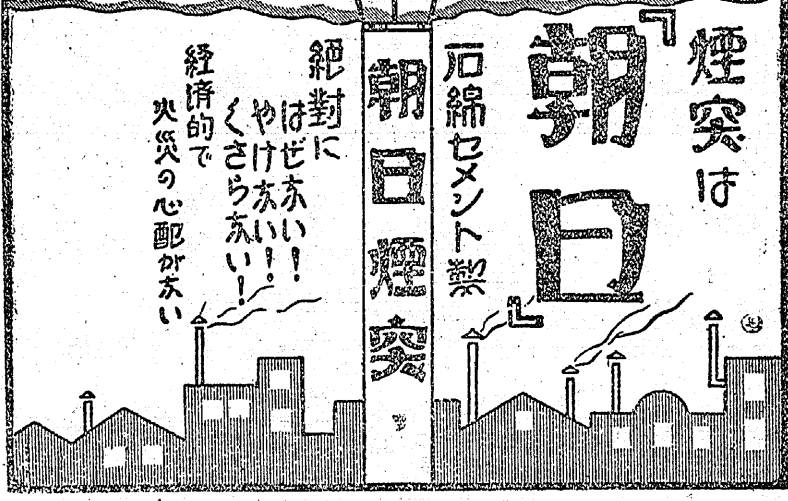 煙突は
『朝日』
石綿セメント製
朝日煙突
絶對に
はぜない!
やけない!
くさらない!
経済的で
火災の心配がない